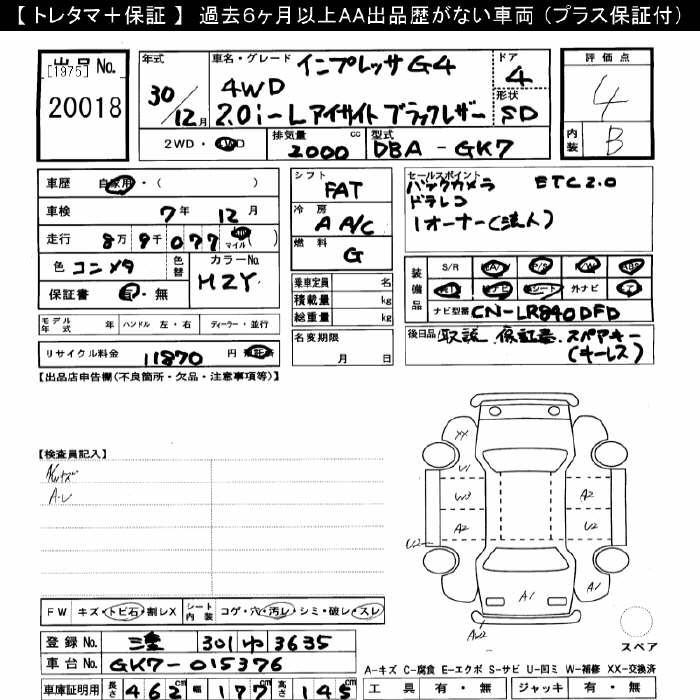 【トレタマ＋保証】 過去6ヶ月以上AA出品歴がない車両(プラス保証付)
出品 No.
[1975]
20018
年式
30/12月
車名・グレード
インプレッサG4
4WD
2.0i-L アイサイト ブラックレザー
ドア
4
形状
SD
評価点
4
内装
B
2WD・4WD
排気量
2000 cc
型式
DBA-GK7
車歴 自家用・( )
車検 7年 12月
走行 8万9千077 km マイル ( )
色 コンメタ
色替
カラーNo.
HZY
保証書 有・無
モデル年式 年 ハンドル 左・右 ディーラー・並行
リサイクル料金 11870 円 預託済
シフト
FAT
冷房
A A/C
燃料
G
乗車定員 名
積載量 kg
総重量 kg
名変期限
月 日
セールスポイント
バックカメラ ETC2.0
ドラレコ
1オーナー(法人)
装備品
S/R
P/S
P/W
ABS
外ナビ
ナビ型番 CN-LR840DFD
後日品 取説 保証書 スペアキー
(キーレス)
【出品店申告欄(不良箇所・欠品・注意事項等)】
【検査員記入】
A-レ
XX
U1
W3
A2
U2
A2
U2
A1
A1
スペア
FW キズ・トビ石・割レX
シート内装 コゲ・穴・汚レ・シミ・破レ・スレ
登録 No. 三重 301 ゆ 3635
車台 No. GK7-015376
車庫証明用 長さ 462cm 幅 177cm 高さ 145cm
A-キズ C-腐食 E-エクボ S-サビ U-凹ミ W-補修 XX-交換済
工具 有・無 ジャッキ 有・無